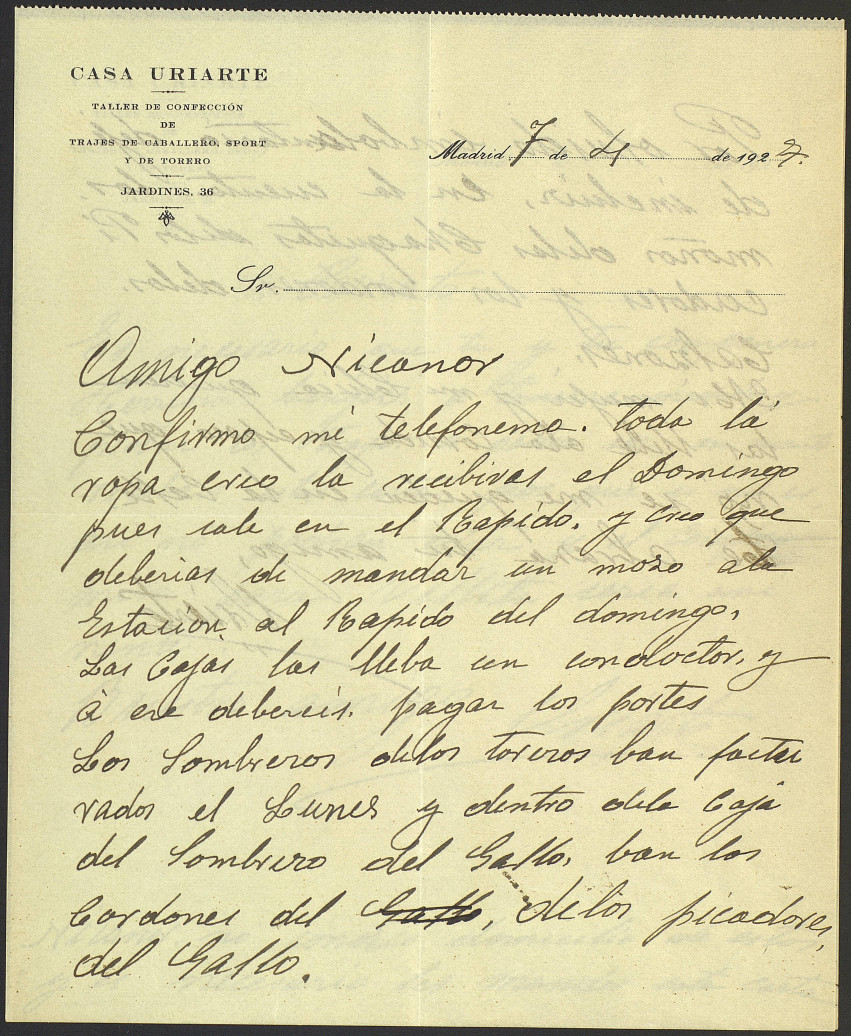 CASA URIARTE
TALLER DE CONFECCIÓN
DE
TRAJES DE CABALLERO, SPORT
Y DE TORERO
JARDINES, 36
Madrid 7 de 4 de 1927.
Sr.
Amigo Nicanor
Confirmo mi telefonema. toda la
ropa creo la recibiras el Domingo
pues sale en el Rapido. y creo que
deberias de mandar un mozo ala
Estacion al Rapido del domingo,
Las Cajas las lleba un conductor, y
à ese debereis. pagar los portes
Los Sombreros delos toreros ban factu
rados el Lunes y dentro dela Caja
del Sombrero del Gallo, ban los
Cordones del Gallo, delos picadores,
del Gallo.